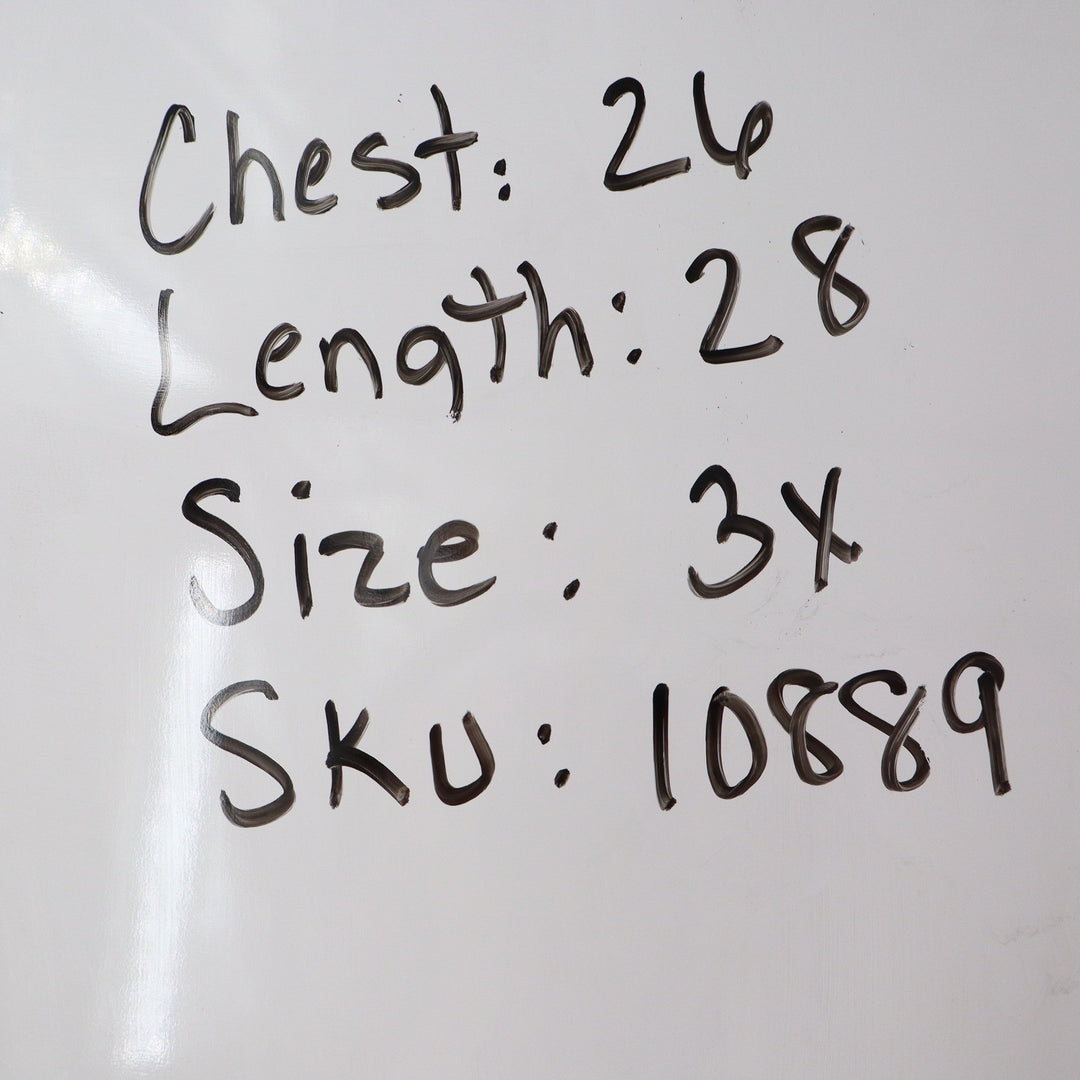 Chest: 26
Length: 28
Size: 3X
SKU: 10889